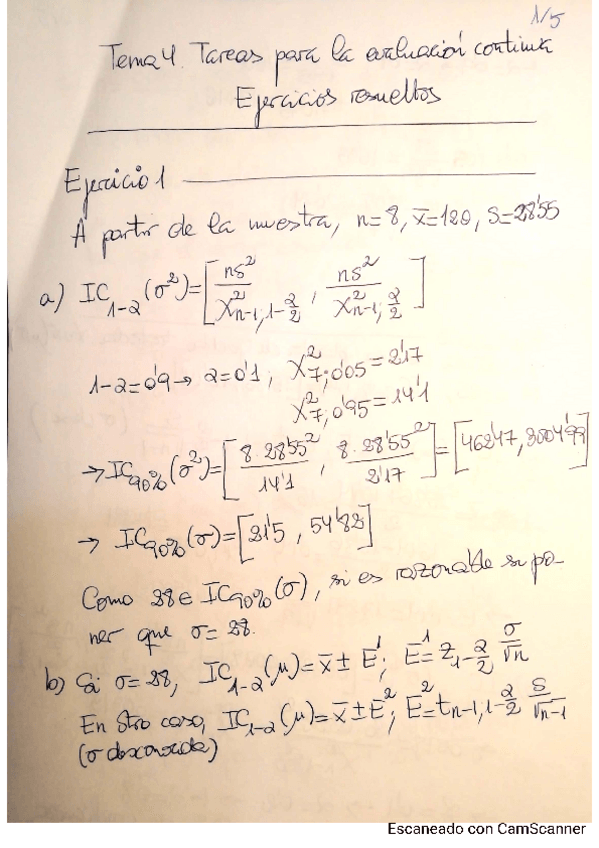 1/5
Tema 4. Tareas para la evaluación continua
Ejercicios resueltos
Ejercicio 1
A partir de la muestra, n=8, x̄=120, S=28'55
a) IC₁₋α(σ²)=[ns²/χ²ₙ₋₁;₁₋α/₂ , ns²/χ²ₙ₋₁;α/₂]
1-α=0'9→ α=0'1; χ²₇;₀'₀₅=2'17
χ²₇;₀'₉₅=14'1
→IC₉₀%(σ²)=[8·28'55²/14'1 , 8·28'55²/2'17]=[462'47, 3004'99]
→ IC₉₀%(σ)=[21'5 , 54'82]
Como 28∈IC₉₀%(σ), si es razonable supo-
ner que σ=28.
b) Si σ=28, IC₁₋α(μ)=x̄±E¹; E¹=z₁₋α/₂ σ/√n
En otro caso, IC₁₋α(μ)=x̄±E²; E²=tₙ₋₁,₁₋α/₂ s/√n-1
(σ desconocida)
Escaneado con CamScanner